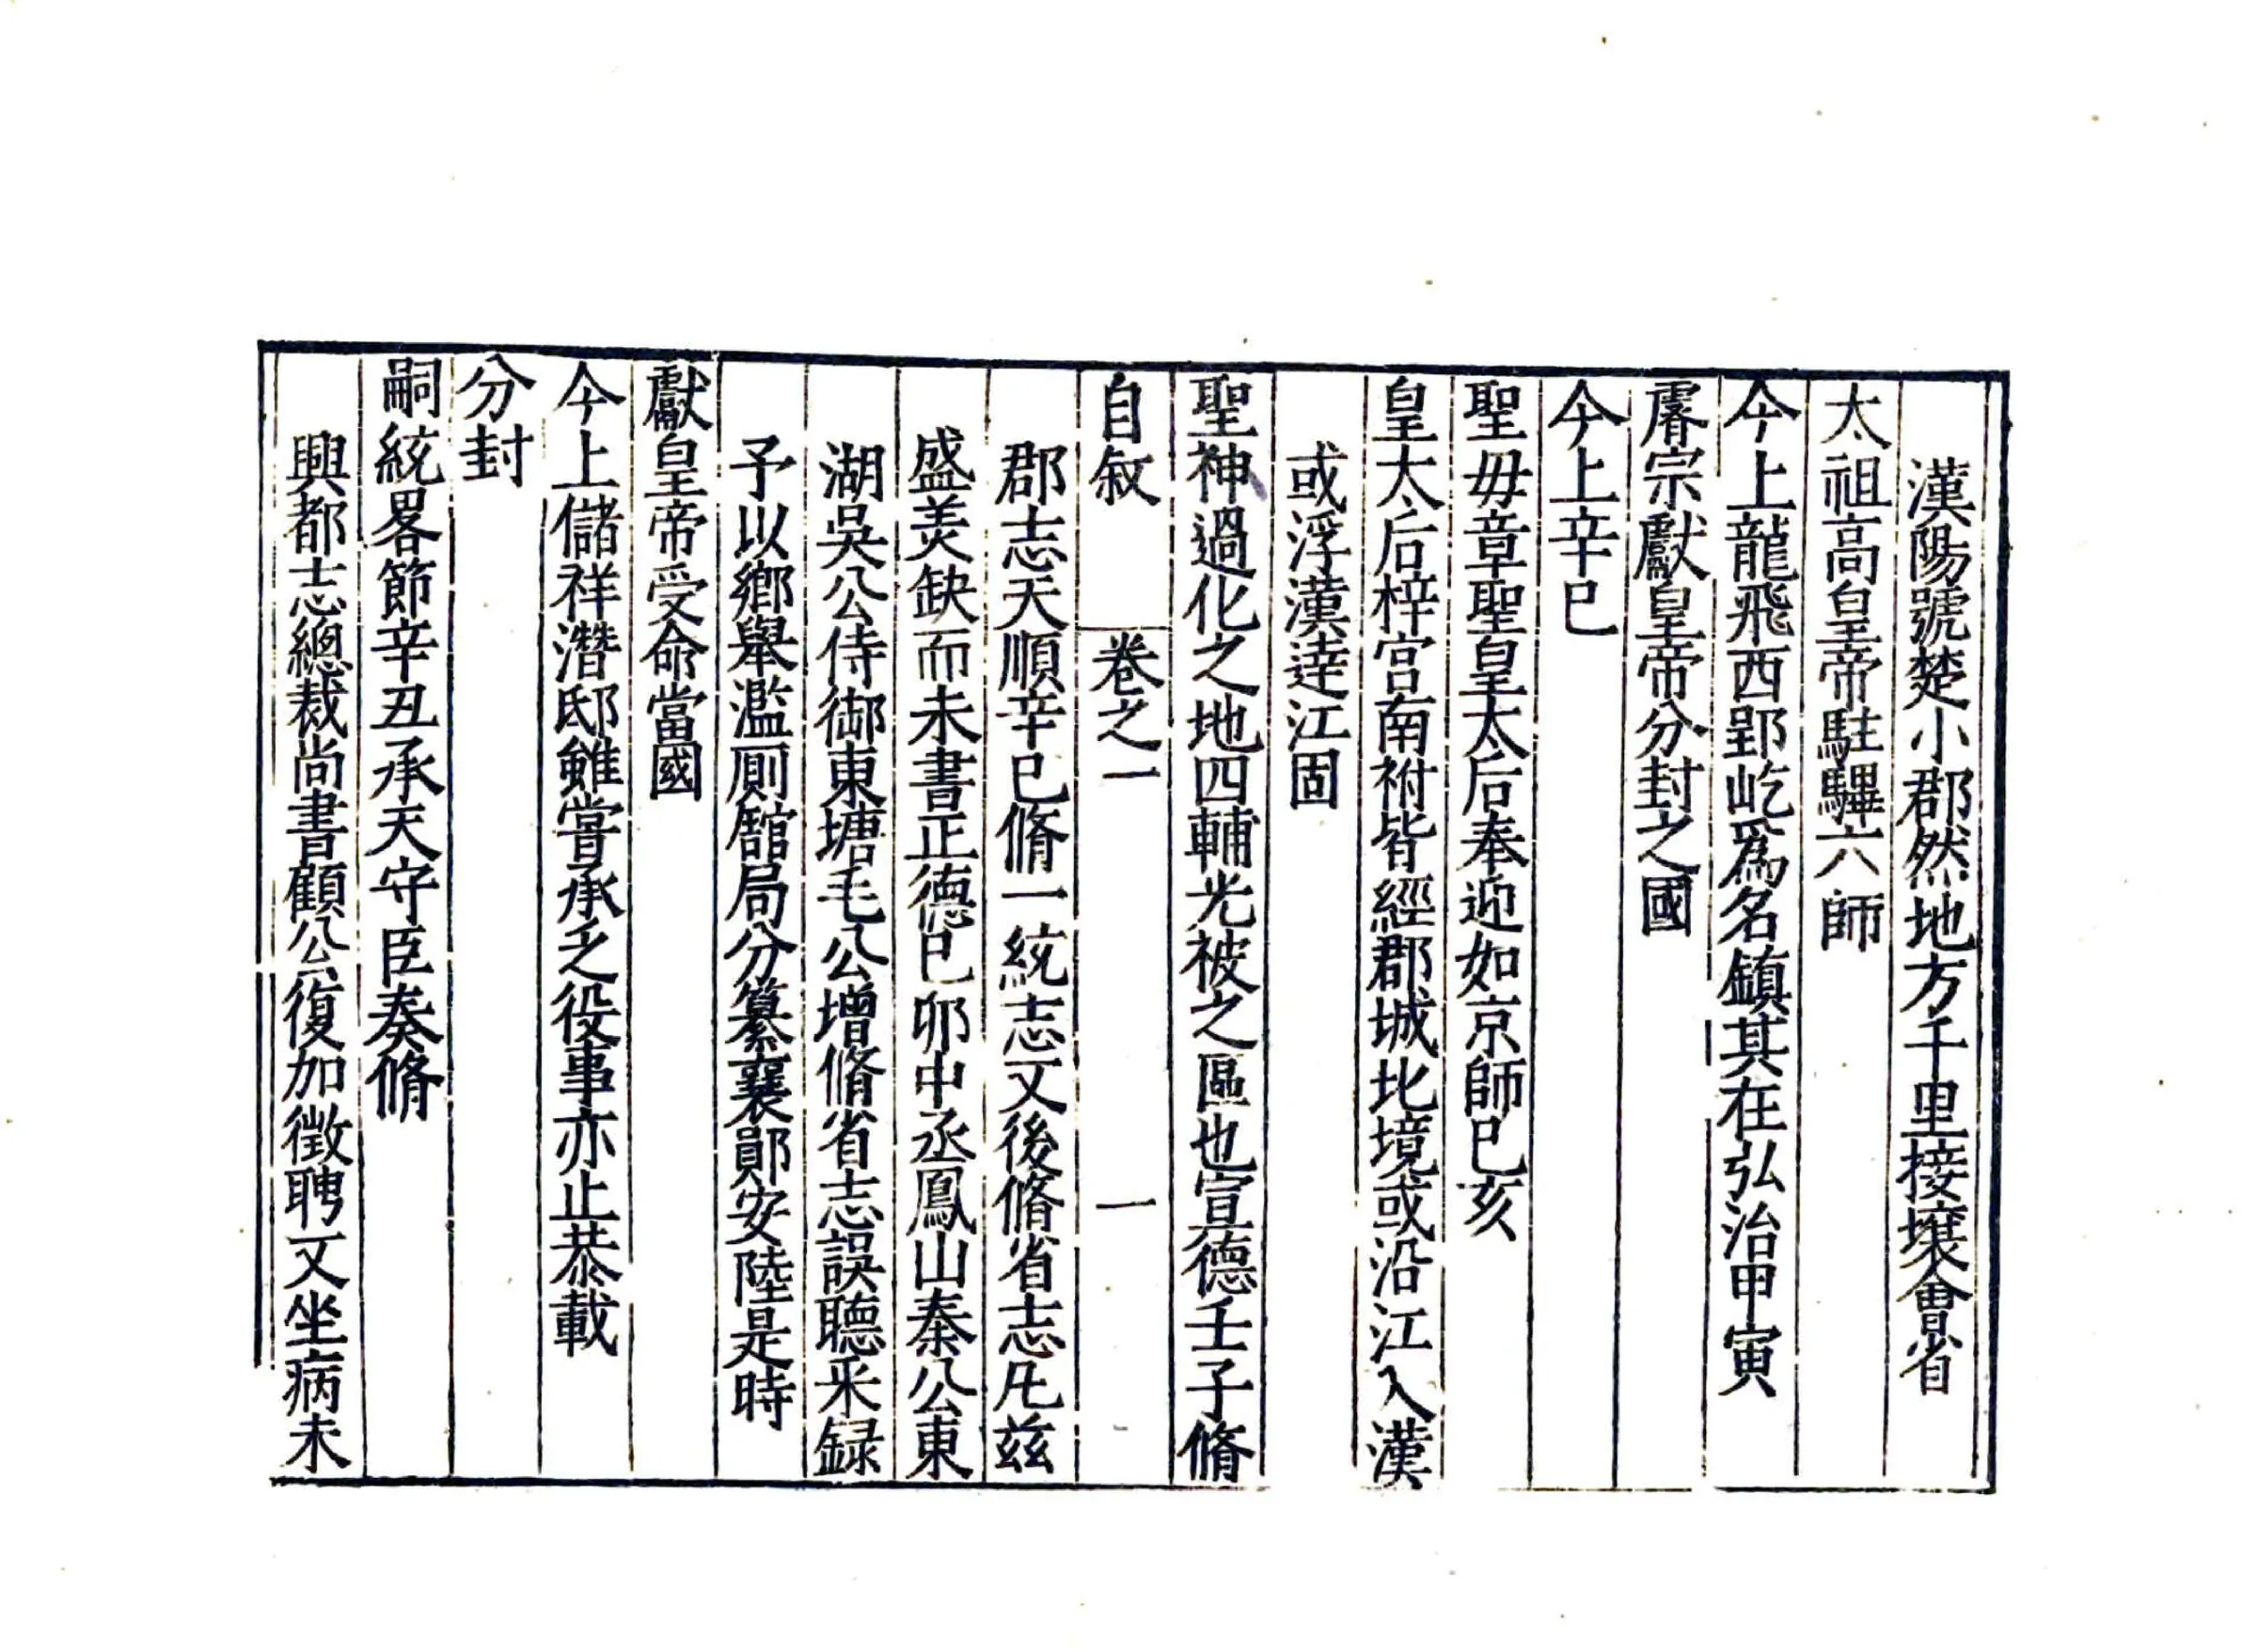 漢陽號楚小郡然地方千里接壌會省
太祖高皇帝駐驆六師
今上龍飛西郢屹爲名鎮其在弘治甲寅
睿宗獻皇帝分封之國
今上辛巳
聖毋章聖皇太后奉迎如京師巳亥
皇太后梓宫南祔皆經郡城北境或沿江入漢
或浮漢達江固
聖神過化之地四輔光被之區也宣德壬子脩
自叙 卷之一 一
郡志天順辛巳脩一統志又後脩省志凡兹
盛羙缺而未書正德巳卯中丞鳳山秦公東
湖吳公侍御東塘毛公增脩省志誤聽采録
予以鄉舉濫厠舘局分纂襄鄖安陸是時
獻皇帝受命當國
今上儲祥潛邸雖嘗承乏役事亦止恭載
分封
嗣統畧節辛丑承天守臣奏脩
興都志總裁尚書顧公復加徵聘又坐病未